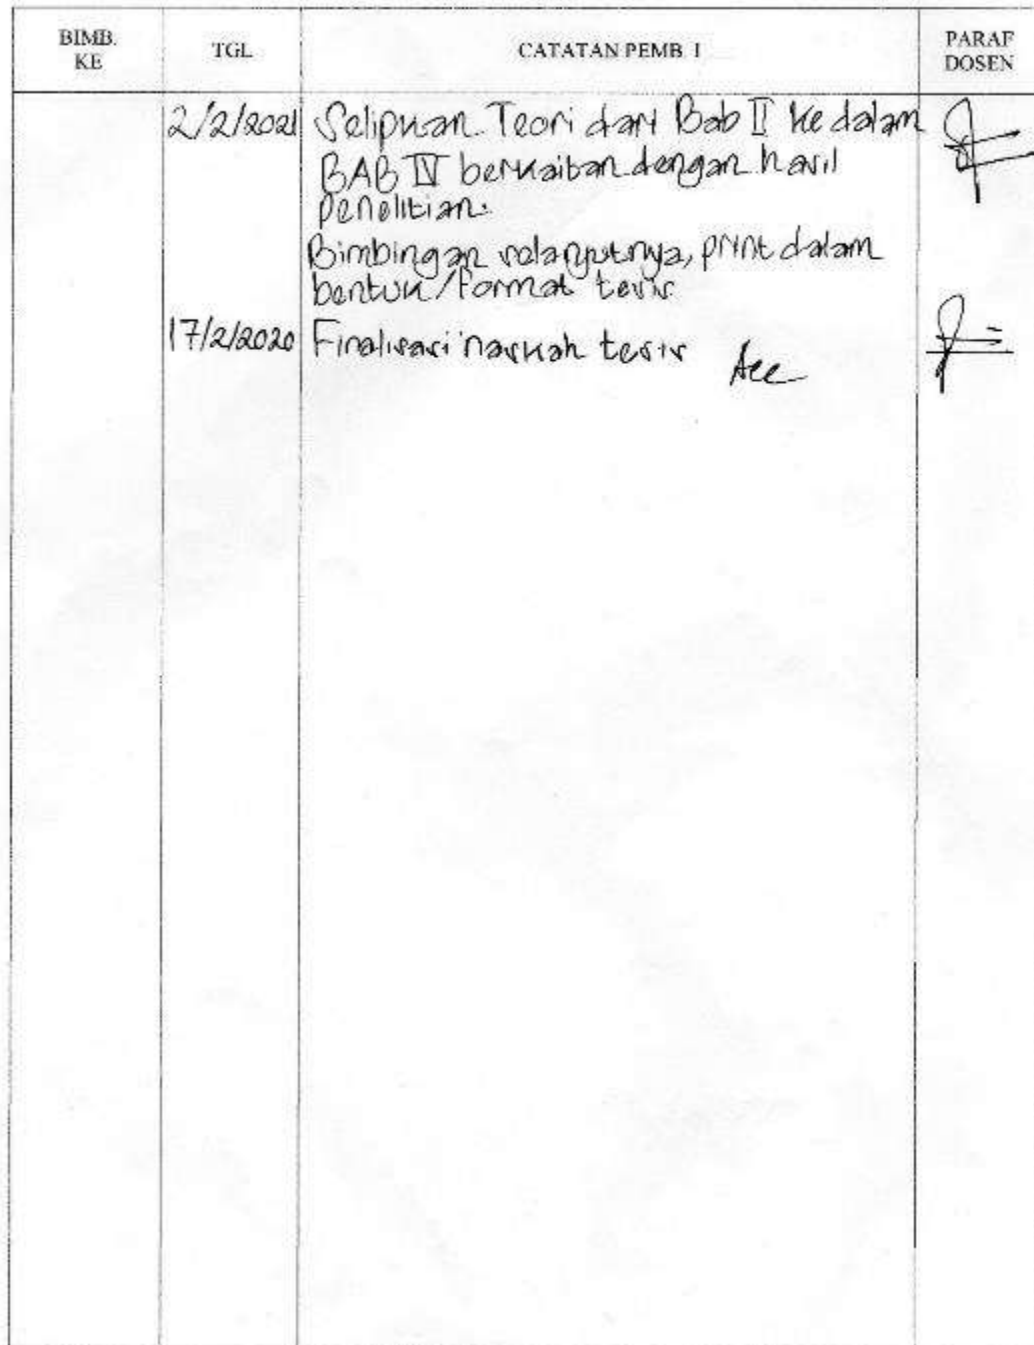 BIMB. KE TGL. CATATAN PEMB. I PARAF DOSEN
2/2/2021 Selipkan Teori dari Bab II ke dalam
BAB IV berkaitan dengan hasil
penelitian.
Bimbingan selanjutnya, print dalam
bentuk/format tesis
17/2/2020 Finalisasi naskah tesis Acc